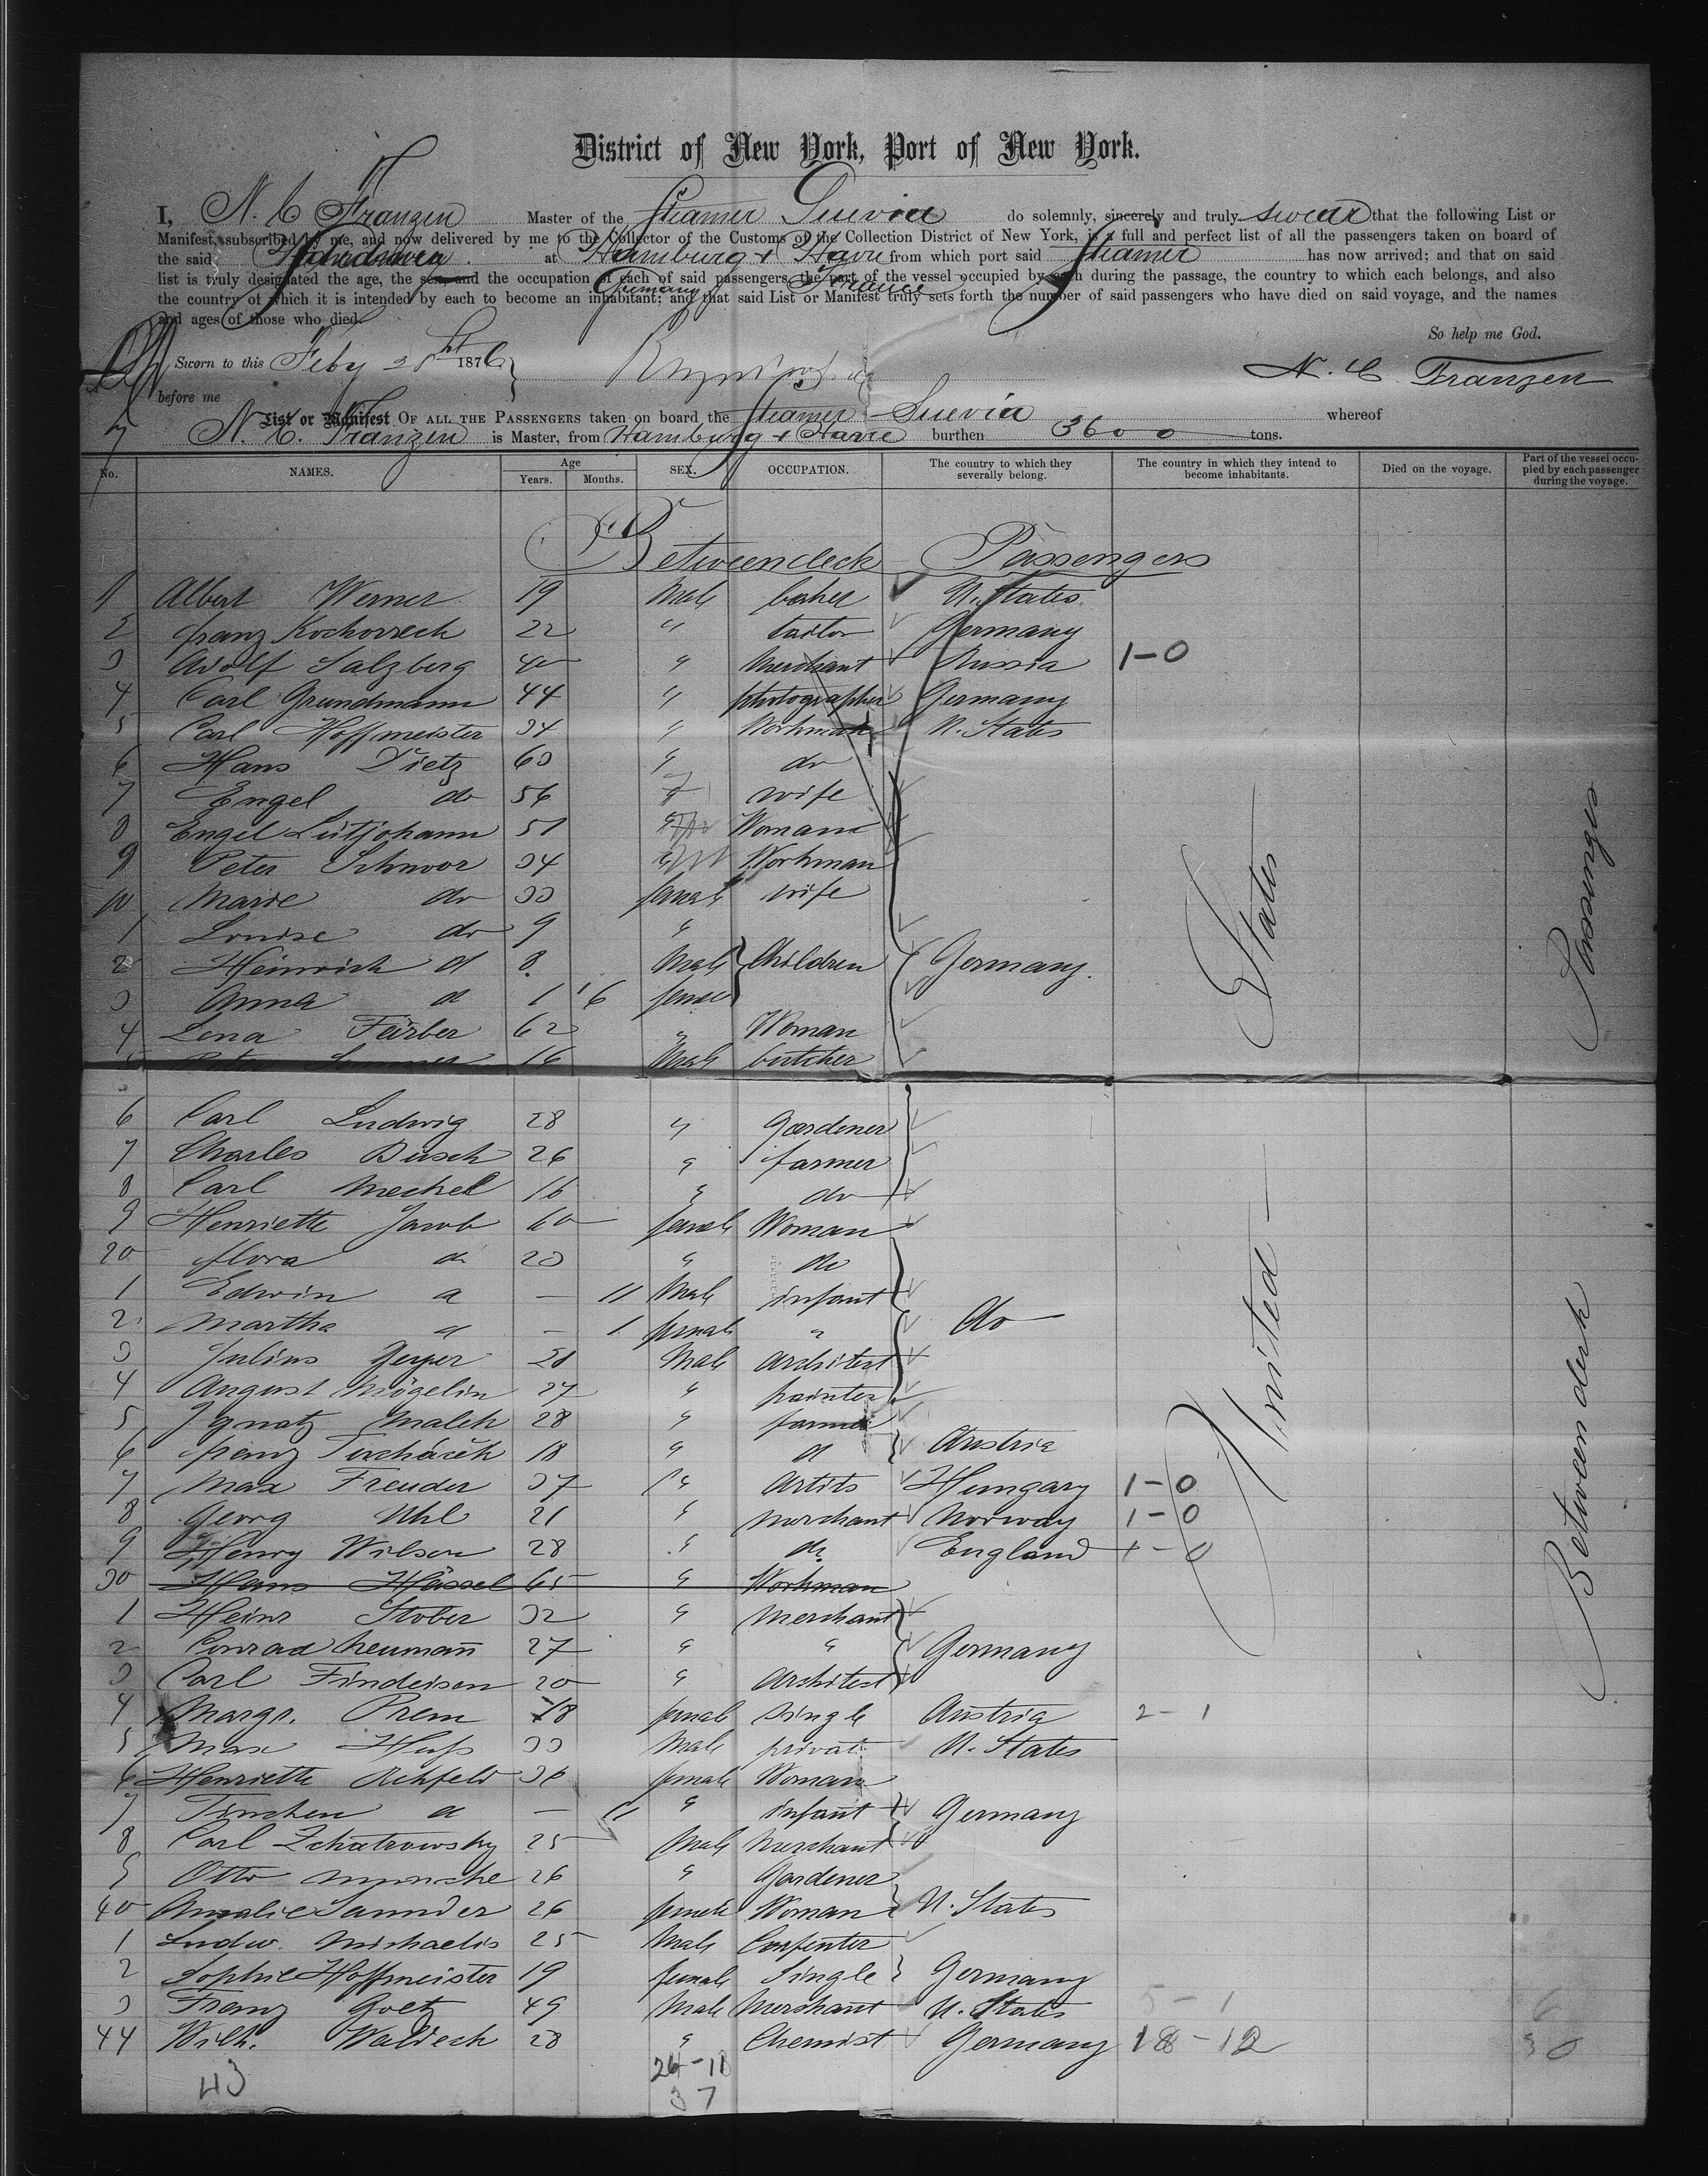 District of New York, Port of New York.
I, N. C Franzen Master of the Steamer Suevia do solemnly, sincerely and truly swear that the following List or
Manifest, subscribed by me, and now delivered by me to the Collector of the Customs of the Collection District of New York, is a full and perfect list of all the passengers taken on board of
the said at Hamburg & Havre from which port said Steamer has now arrived; and that on said
Germany France
list is truly designated the age, the sex, and the occupation of each of said passengers, the part of the vessel occupied by each during the passage, the country to which each belongs, and also
the country of which it is intended by each to become an inhabitant; and that said List or Manifest truly sets forth the number of said passengers who have died on said voyage, and the names
and ages of those who died.
So help me God.
Sworn to this Feby 1876
before me
N. C. Franzen
List or Manifest OF ALL THE PASSENGERS taken on board the Steamer Suevia whereof
N. C. Franzen is Master, from Hamburg & Havre burthen 3600 tons.
No. NAMES. Age Years. Months. SEX. OCCUPATION. The country to which they severally belong. The country in which they intend to become inhabitants. Died on the voyage. Part of the vessel occupied by each passenger during the voyage.
Betweendeck Passengers
1 Albert Werner 19 Male baker U. States
2 franz Kochorreck 22 " tailor Germany
3 Adolf Salzberg 40 " Merchant Russia 1-0
4 Carl Grundmann 44 " photographer Germany
5 Carl Hoffmeister 34 " Workman U. States
6 Hans Dietz 63 " do
7 Engel do 56 " wife
8 Engel Lütjohann 51 " Woman
9 Peter Schnoor 34 " Workman
10 Marie do 33 female wife
1 Louise do 9 "
2 Heinrich d 8 Male Children Germany.
3 Anna d 1 6 female
4 Lena Färber 62 " Woman
16 Male butcher
6 Carl Ludwig 28 " Gardener
7 Charles Busch 26 " farmer
8 Carl Mechel 16 " do
9 Henriette Jacob 60 female Woman
20 flora d 23 " do
1 Edwin d — 11 Male infant
2 Martha d — 1 female " do
3 Julius Geyer 28 Male Architect
4 August Mögelin 27 " painter
5 Ignatz Malek 28 " farmer
6 franz 18 " d Austria
7 Max Freuder 37 " Artits Hungary 1-0
8 Georg Uhl 21 " merchant Norway 1-0
9 Henry Wilson 28 " do England 1-0
30 Hans Hässel 65 " Workman
1 Heinr Stober 32 " Merchant
2 Conrad Neumann 27 " " Germany
3 Carl Findeisen 20 " Architect
4 Margr. Prem 18 female single Austria 2-1
5 Max Huss 33 Male privat U. States
6 Henriette Rehfeld 36 female Woman
7 Tinchen d — 11 " infant Germany
8 Carl Zchatrowsky 25 Male Merchant
9 Otto 26 " Gardener
40 Amalie Saunder 26 female Woman U. States
1 Ludw. Michaelis 25 Male Carpenter
2 Sophie Hoffmeister 19 female Single Germany
3 Franz Goetz 49 Male Merchant U. States 5-1 6
44 Wilh. Waldeck 28 " Chemist Germany 18-12 30
43
26-18
37
United States
Between deck Passenger